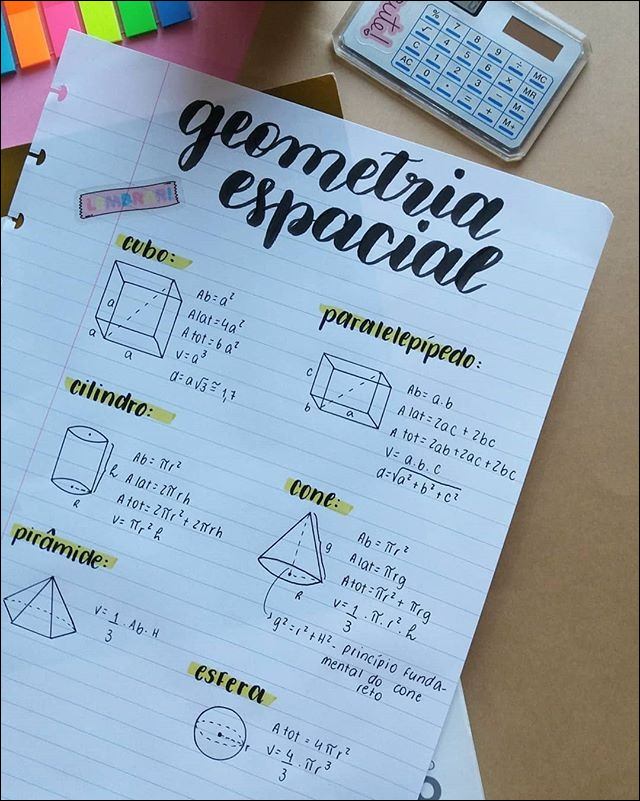 Cute!
% 7 8 9 ÷ MC
√ 4 5 6 × MR
C 1 2 3 - M-
AC 0 . = + M+
geometria
espacial
LEMBRAR!
cubo:
a
a
a
Ab = a²
Alat = 4a²
Atot = 6a²
V = a³
d = a√3 ≅ 1,7
paralelepípedo:
c
b
a
Ab = a.b
Alat = 2ac + 2bc
Atot = 2ab + 2ac + 2bc
V = a.b.c
d = √a² + b² + c²
cilindro:
h
R
Ab = πr²
Alat = 2πrh
Atot = 2πr² + 2πrh
V = πr² h
cone:
g
R
Ab = πr²
Alat = πrg
Atot = πr² + πrg
V = 1/3 . π. r². h
g² = r² + H² - princípio funda-
mental do cone
reto
pirâmide:
V = 1/3 . Ab . H
esfera
r
Atot = 4πr²
V = 4/3 . πr³